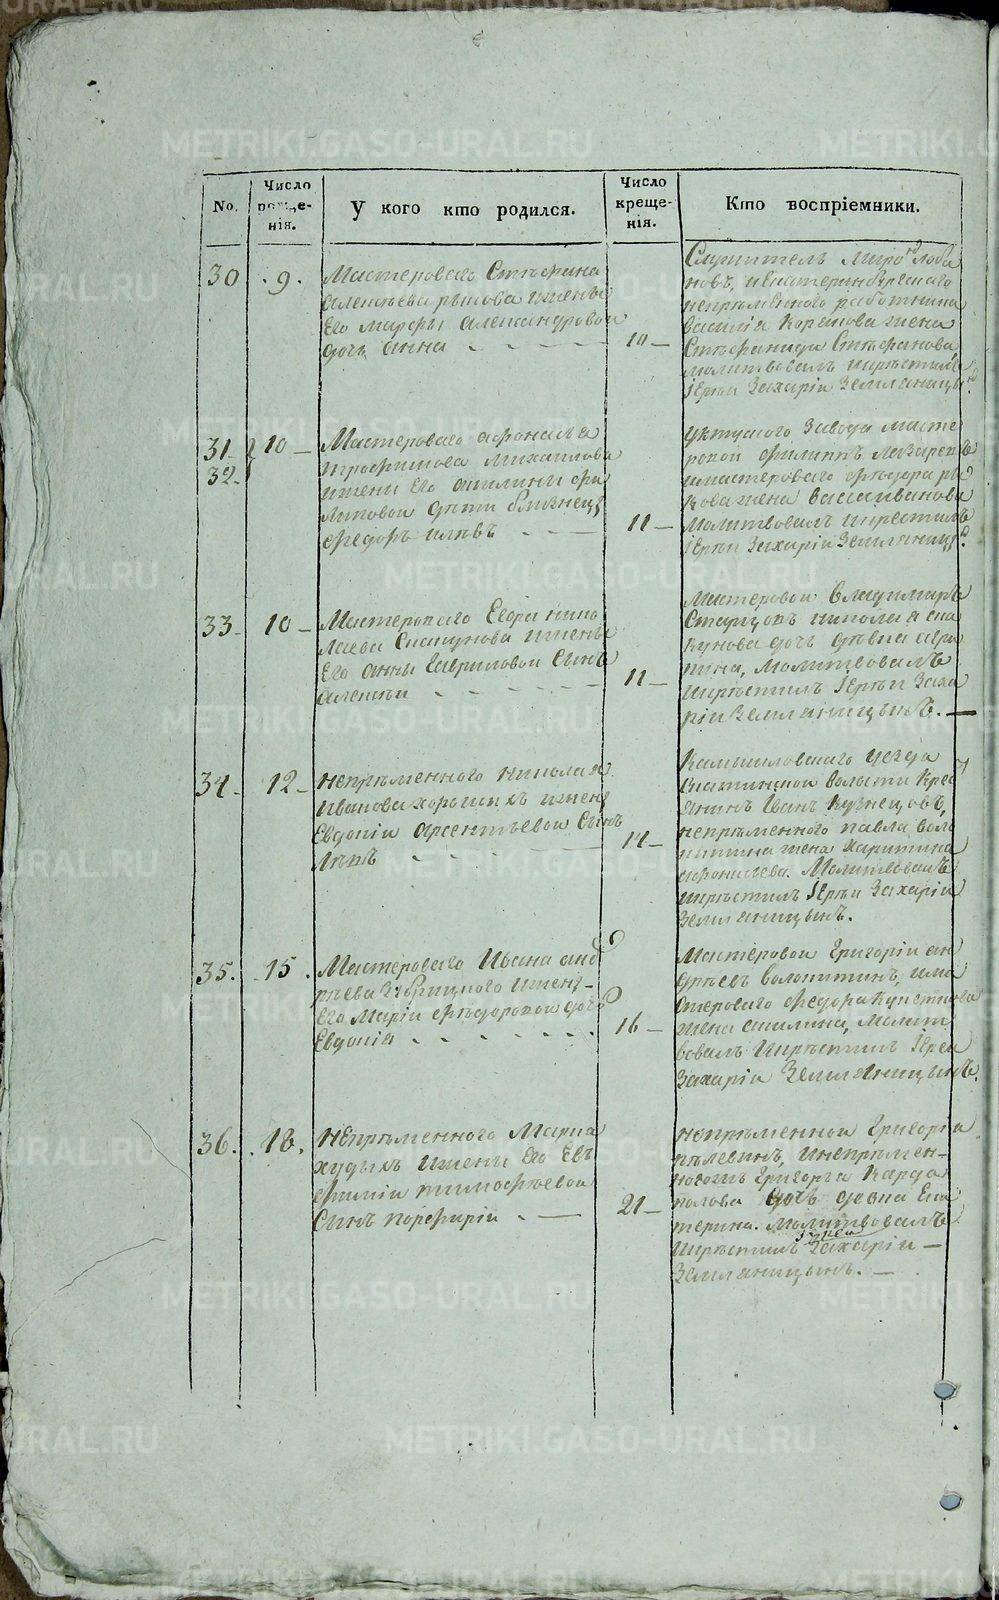 No.
Число рожде-
нія.
У кого кто родился.
Число
креще-
нія.
Кто воспріемники.
30
9.
Мастероваго Стефана
Алексѣева рыкова ижены
Его марфы александровои
дочь анна
10
Служитель Миро Лоба
новъ, иекатеринбургскаго
непремѣнного работника
василія Корепова жена
Стефанида Стефанова,
молитвовалъ икрестилъ
Iереи Захаріи Земляницынъ
31
32
10
Мастероваго афонасья
трофимова михаилова
ижены Его акилины фи
липовои дѣти близнецы
федоръ илевъ
11
уктуского завода масте
ровои филиппъ лазаревъ
имастероваго федора ры
кова жена васса иванова
молитвовалъ икрестилъ
Iереи Захаріи Земляницынъ
33
10
Мастероваго Егора нико
лаева Скакунова ижены
Его анны Гавриловои Сынъ
алексѣи
11
Мастеровои Владимиръ
Старцовъ николая ска
кунова дочь девка агри
пина, молитвовалъ
икрестилъ Iереи Заха
ріи Земляницынъ.
34
12
непремѣнного николая
Иванова хорошихъ ижены
Евдокіи арсентьевои Сынъ
левъ
14
Камышловскаго уезда
волости крес
янинъ Иванъ Кузнецовъ,
непремѣнного павла воло
китина жена харитина
афонасьева. Молитвовалъ
икрестилъ Iереи Захаріи
Земляницынъ.
35.
15.
Мастероваго Ивана анд
реева Забрицкого ижены
Его Маріи федоровои дочь
Евдокія
16
Мастеровои Григоріи ан
дреевъ волокитинъ, има
стероваго федора
жена акилина, Молит
вовалъ Икрестилъ Iереи
Захаріи Земляницынъ.
36.
18.
Непремѣнного Марка
худыхъ ижены Его Ев
фиміи тимофеевои
Сынъ порфиріи
21
непременнои Григоріи
пелевинъ, инепремен-
ного Григорья Карга
полова дочь девка Ека
терина. Молитвовалъ
Iереи
Икрестилъ Захаріи
Земляницынъ.
METRIKI.GASO-URAL.RU